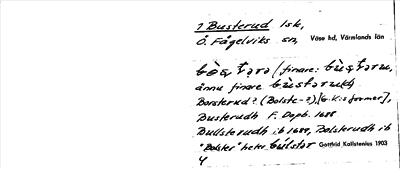 1 Busterud Isk,
Ö. Fågelviks sn, Väse hd, Värmlands län
(finare:
ännu finare
Borsterud? (Bolste-?) [G.K:s former],
Busterudh F. Dopb. 1688
Bullsterudh ib 1688, Bolsterudh ib
"Bolster" heter Gottfrid Kallstenius 1903
4